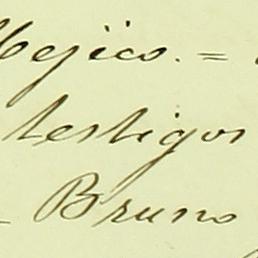 Mejico. =
testigos
Bruno